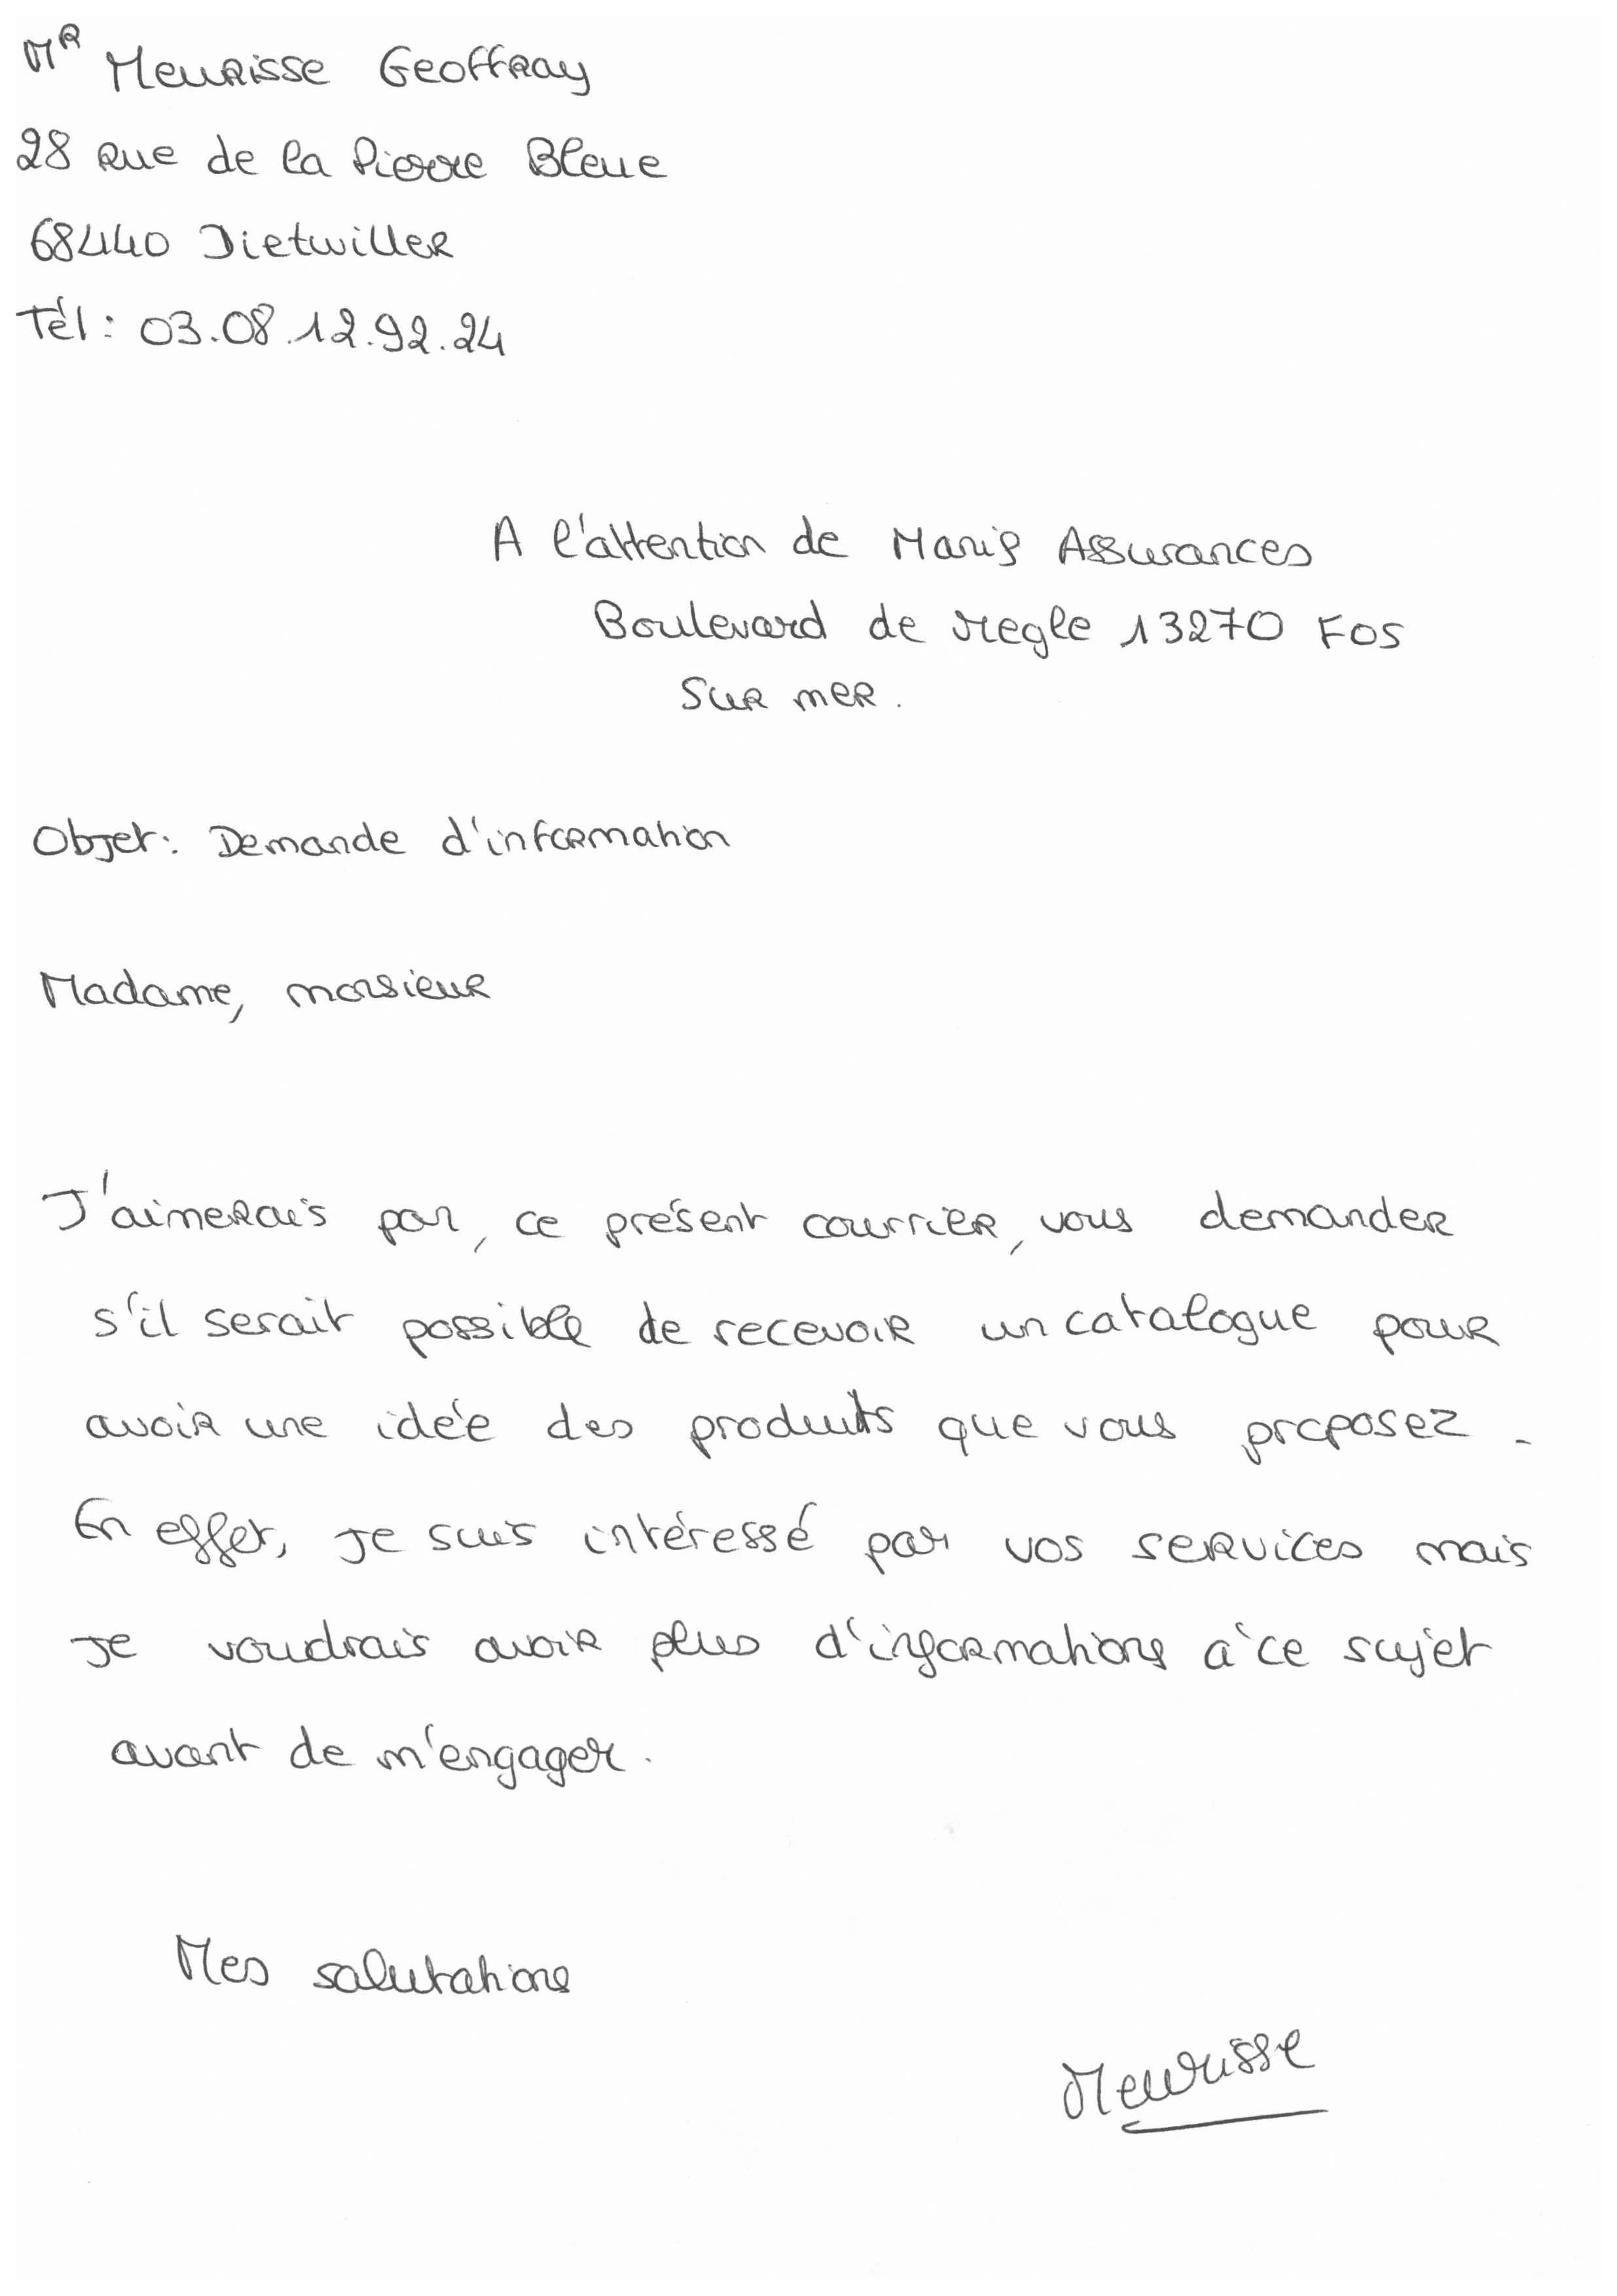 MR Meurisse Geoffray
28 rue de la Pierre Bleue
68440 Dietwiller
Tél : 03.08.12.92.24
A l'attention de Manis Assurances
Boulevard de Megle 13270 FOS
sur mer.
Objet : Demande d'information
Madame, monsieur
J'aimerais par, ce présent courrier, vous demander
s'il serait possible de recevoir un catalogue pour
avoir une idée des produits que vous proposez.
En effet, je suis intéressé par vos services mais
je voudrais avoir plus d'informations à ce sujet
avant de m'engager.
Mes salutations
Meurisse